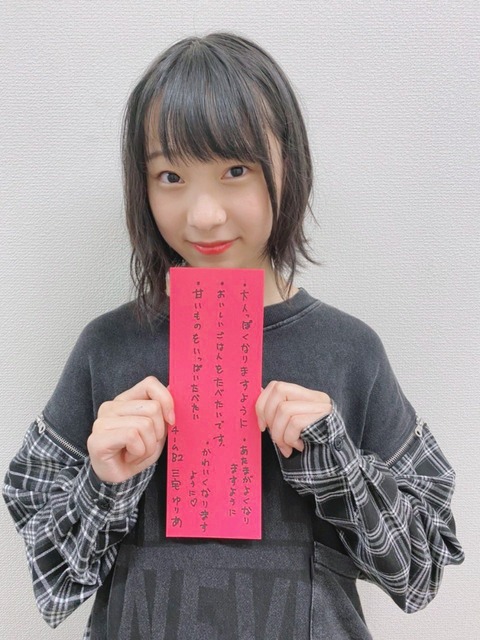 ・大人っぽくなりますように
・あたまがよくなり
ますように
・おいしいごはんをたべたいです。
・かわいくなります
ように♡
・甘いものもいっぱいたべたい
チームB2 三宅ゆりあ